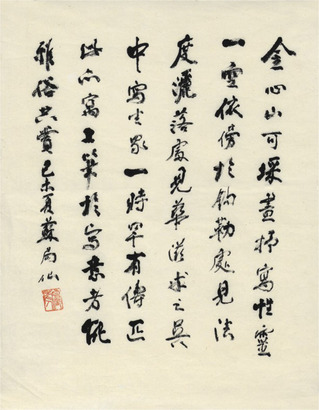 金心山可畫抒寫性靈
一空依傍於鉤勒處見法
度灑落處見華滋求之吳
中寫生家一時罕有儔匹
此亦寓工筆於寫意者能
雅俗共賞己未夏蘇局仙